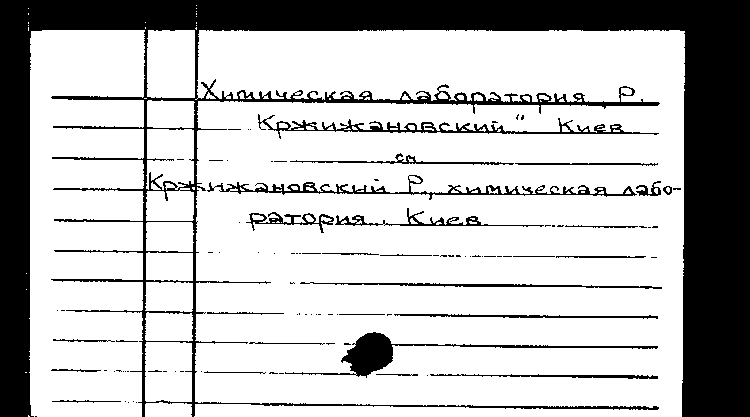 Химическая лаборатория „Р.
Кржижановский“. Киев
см.
Кржижановский Р., химическая лабо-
ратория. Киев.